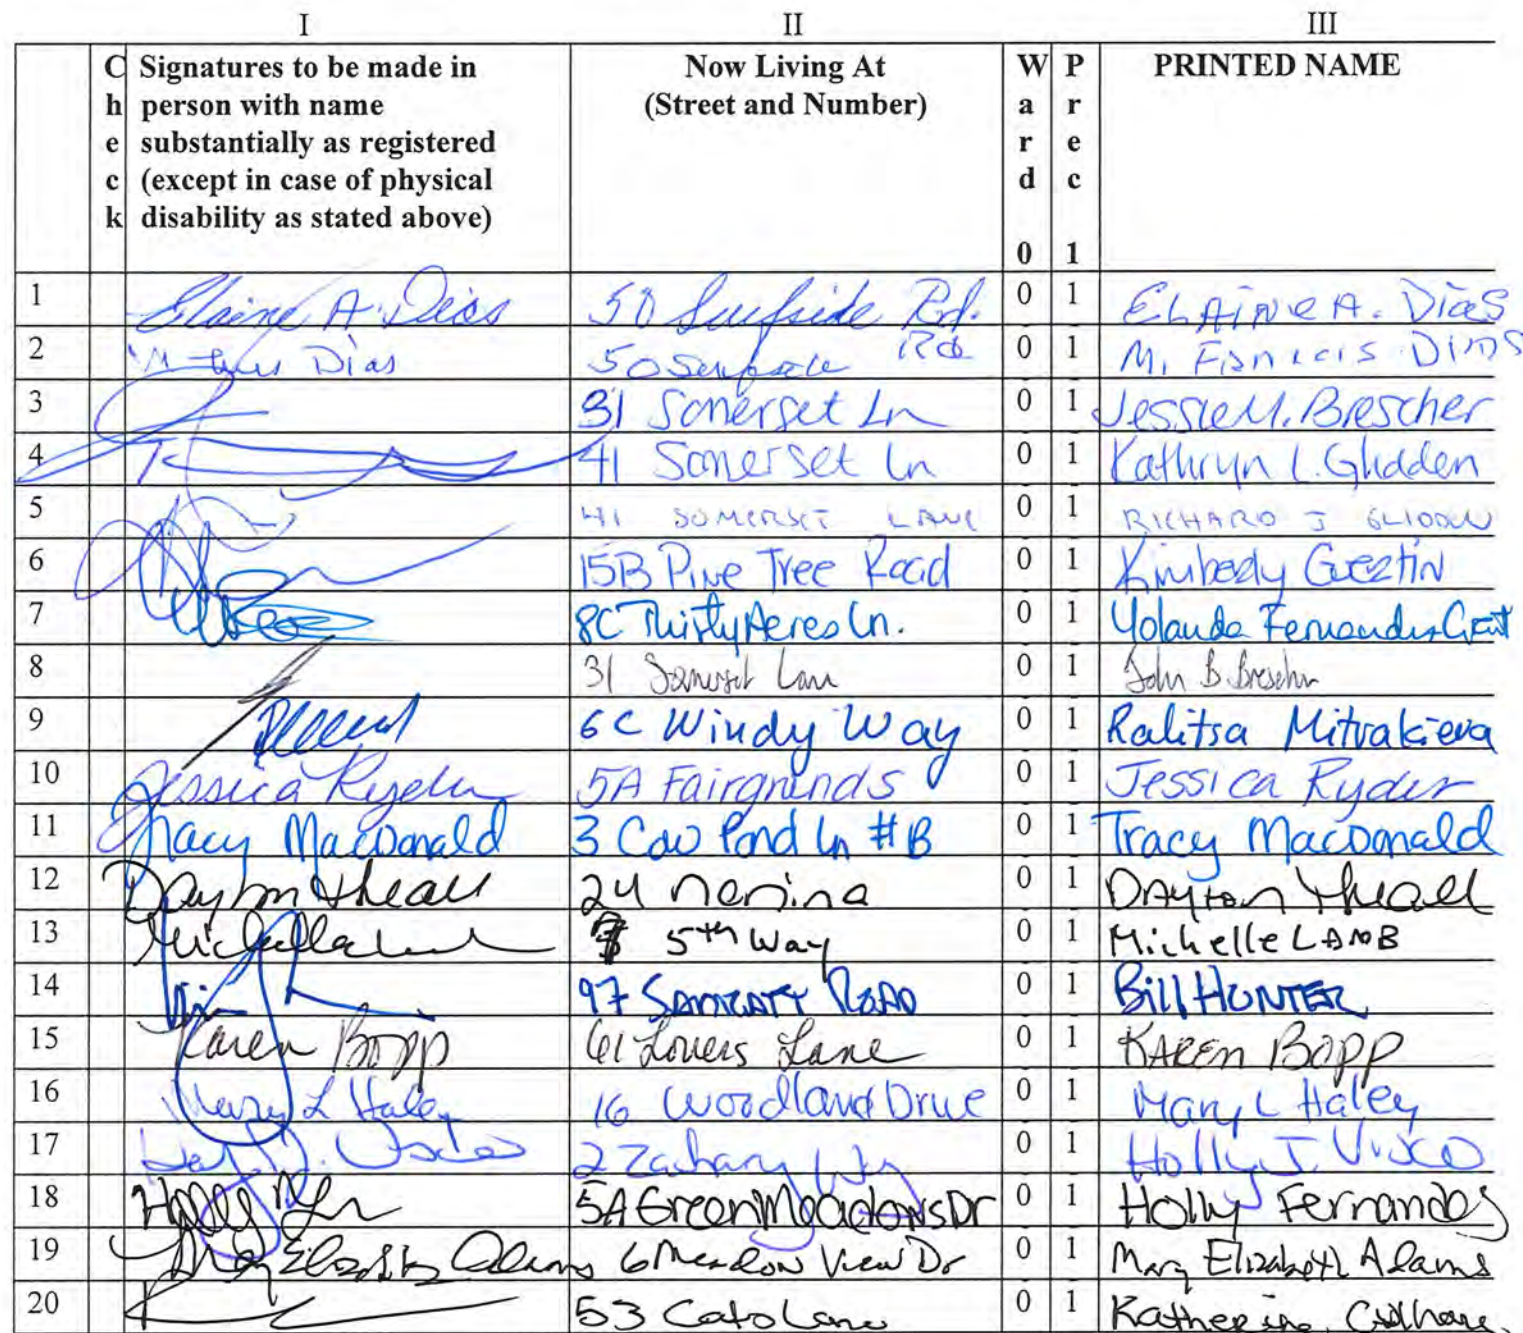 I II III
C h e c k Signatures to be made in person with name substantially as registered (except in case of physical disability as stated above) Now Living At (Street and Number) W a r d 0 P r e c 1 PRINTED NAME
1 Elaine A. Dias 50 Surfside Rd. 0 1 ELAINE A. Dias
2 Dias 50 Surfside Rd 0 1 M. Francis DIAS
3 31 Somerset Ln 0 1 Jessie M. Brescher
4 41 Somerset Ln 0 1 Kathryn L. Glidden
5 41 SOMERSET LANE 0 1 RICHARD J GLIDDEN
6 15B Pine Tree Road 0 1 Kimberly
7 8C Thirty Acres Ln. 0 1 Yolanda
8 31 Somerset Lane 0 1 John B Brescher
9 6C Windy Way 0 1 Ralitsa Mitrakieva
10 Jessica Ryder 5A Fairgrounds 0 1 Jessica Ryder
11 Tracy MacDonald 3 Cow Pond Ln #B 0 1 Tracy MacDonald
12 Dayton Theall 24 0 1 DAYTON Theall
13 5th Way 0 1 Michelle LAMB
14 97 ROAD 0 1 Bill HUNTER
15 Karen Bopp 61 Lovers Lane 0 1 KAREN BOPP
16 Mary L Haley 16 Woodland Drive 0 1 Mary L Haley
17 2 Zachary Way 0 1 Holly J. Visco
18 Holly 5A Green Meadows Dr 0 1 Holly Fernandes
19 Mary Elizabeth Adams 6 Meadow View Dr 0 1 Mary Elizabeth Adams
20 53 Cato Lane 0 1 Katherine